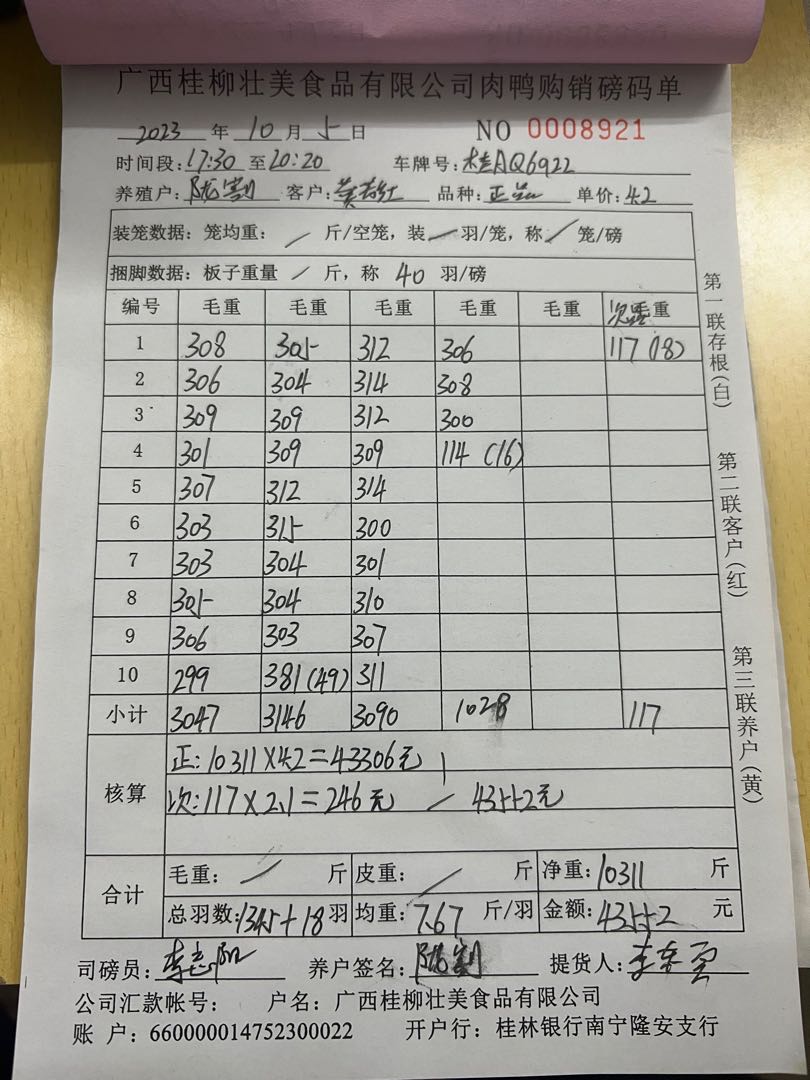 广西桂柳壮美食品有限公司肉鸭购销磅码单
2023 年 10 月 5 日 NO 0008921
时间段:17:30 至20:20 车牌号:桂AQ6922
养殖户: 客户: 品种:正品 单价:4.2
装笼数据:笼均重: / 斤/空笼,装 / 羽/笼,称 / 笼/磅
捆脚数据:板子重量 / 斤,称 40 羽/磅
编号 毛重 毛重 毛重 毛重 毛重 次重
1 308 305 312 306 117 (18)
2 306 304 314 308
3 309 309 312 300
4 301 309 309 114 (16)
5 307 312 314
6 303 315 300
7 303 304 301
8 305 304 310
9 306 303 307
10 299 381(49) 311
小计 3047 3146 3090 1028 117
核算 正:10311×4.2=43306元
次:117×2.1=246元 / 43552元
合计 毛重: / 斤 皮重: / 斤 净重:10311 斤
总羽数:1345+18 羽 均重:7.67 斤/羽 金额:43552 元
司磅员: 养户签名: 提货人:
公司汇款帐号: 户名:广西桂柳壮美食品有限公司
账 户:660000014752300022 开户行:桂林银行南宁隆安支行
第一联存根(白)
第二联客户(红)
第三联养户(黄)